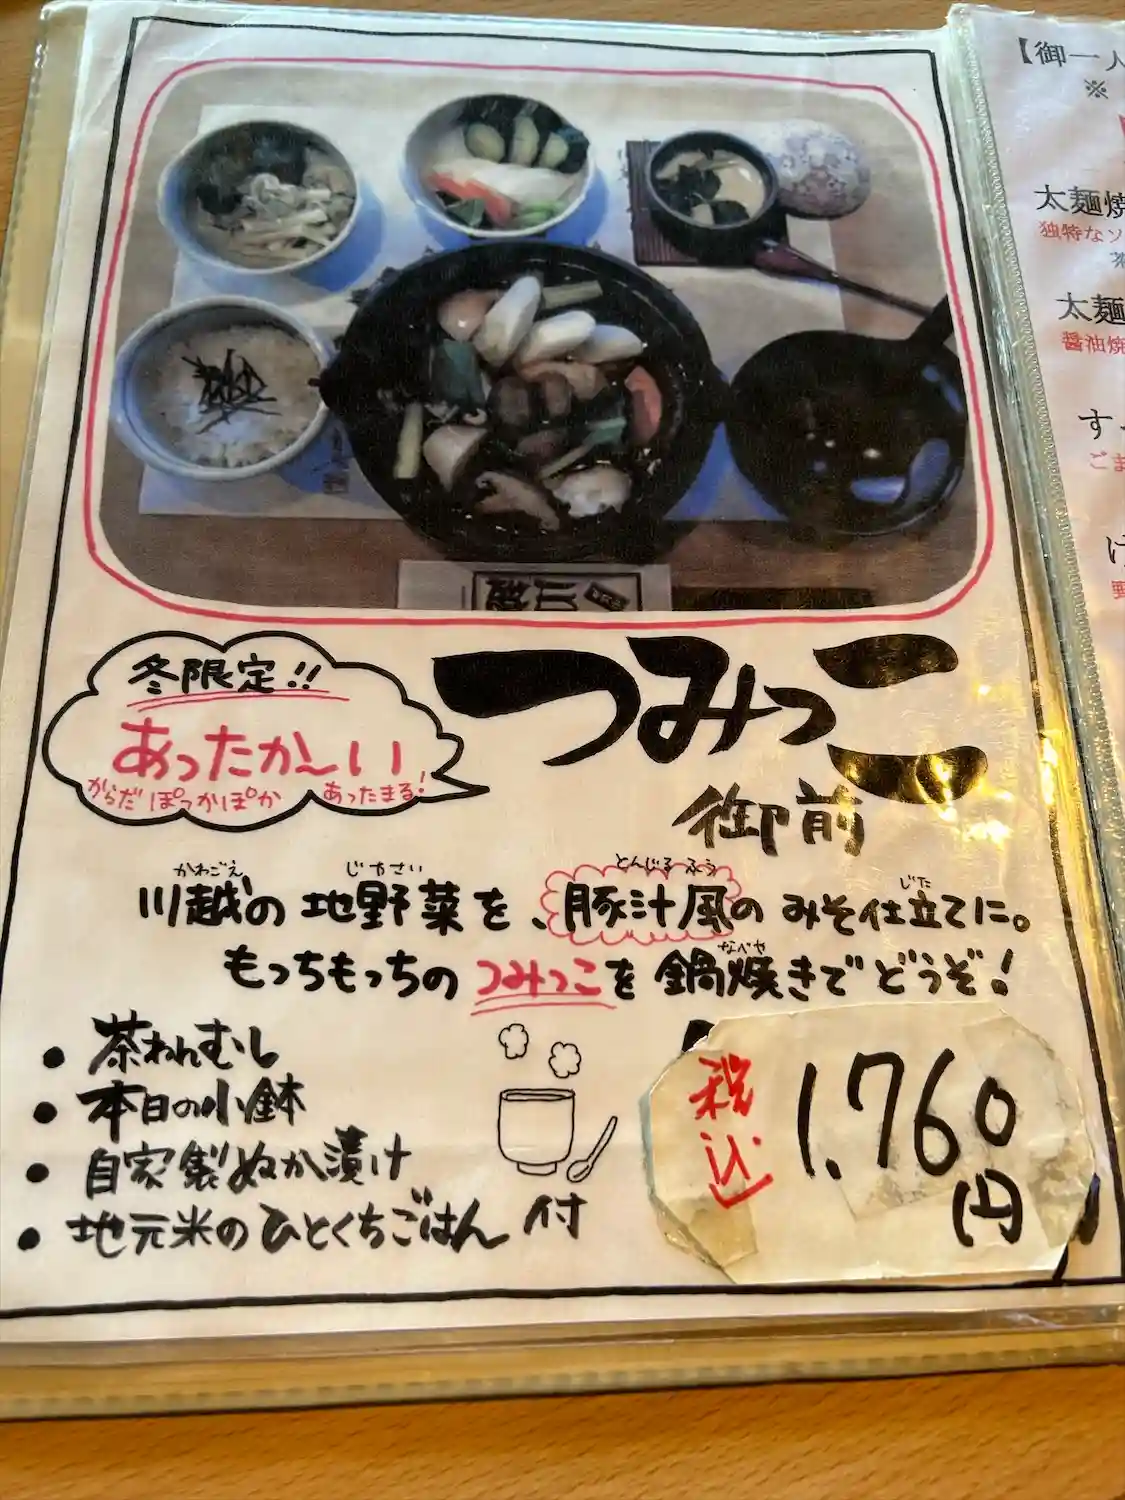 冬限定!!
あったか〜い
からだ ぽっかぽか あったまる!
つみっこ
御前
かわごえ じやさい とんじるふう じた
川越の地野菜を、豚汁風のみそ仕立てに。
なべや
もっちもっちのつみっこを鍋焼きでどうぞ!
• 茶わんむし
• 本日の小鉢
• 自家製ぬか漬け
• 地元米のひとくちごはん 付
税込
1,760
円
【御一人
※
太麺焼
独特なソ
太麺
醤油焼
す
ごま
け